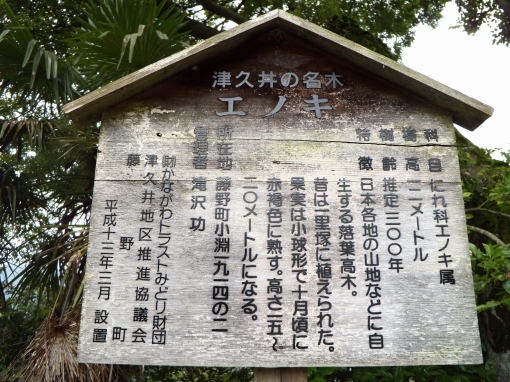 津久井の名木
エノキ
科目 にれ科エノキ属
樹高 二一メートル
樹齢 推定三〇〇年
特徴 日本各地の山地などに自
生する落葉高木。
昔は一里塚に植えられた。
果実は小球形で十月頃に
赤褐色に熟す。高さ一五〜
二〇メートルになる。
所在地 藤野町小淵一九二四の二
管理者 滝沢 功
財かながわトラストみどり財団
津久井地区推進協議会
藤野町
平成十三年三月 設置